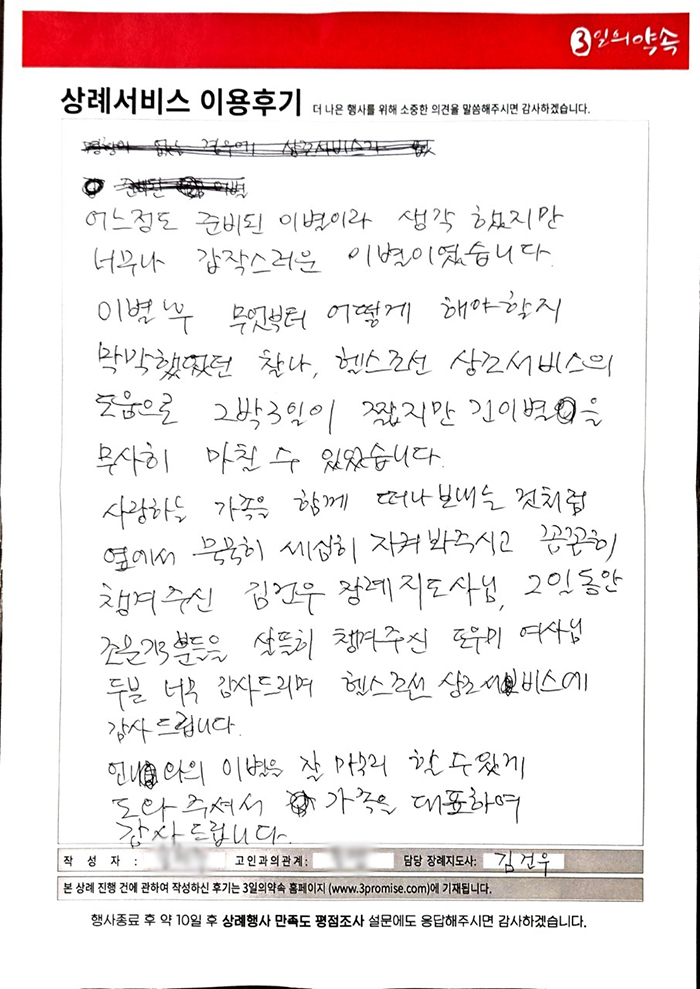 3일의약속
상례서비스 이용후기 더 나은 행사를 위해 소중한 의견을 말씀해주시면 감사하겠습니다.
어느정도 준비된 이별이라 생각 했지만
너무나 갑작스러운 이별이였습니다.
이별후 무엇부터 어떻게 해야할지
막막했던 찰나, 헬스조선 상조서비스의
도움으로 2박3일이 짧지만 긴이별을
무사히 마칠 수 있었습니다.
사랑하는 가족을 함께 떠나 보내는 것처럼
옆에서 묵묵히 세심히 지켜 봐주시고 꼼꼼히
챙겨주신 김건우 장례지도사님, 2일동안
조문객분들을 살뜰히 챙겨주신 도우미 여사님
두분 너무 감사드리며 헬스조선 상조서비스에
감사드립니다.
언니와의 이별을 잘 마무리 할 수 있게
도와 주셔서 가족을 대표하여
감사드립니다.
작 성 자 : 고인과의관계 : 담당 장례지도사: 김건우
본 상례 진행 건에 관하여 작성하신 후기는 3일의약속 홈페이지 (www.3promise.com)에 기재됩니다.
행사종료 후 약 10일 후 상례행사 만족도 평점조사 설문에도 응답해주시면 감사하겠습니다.